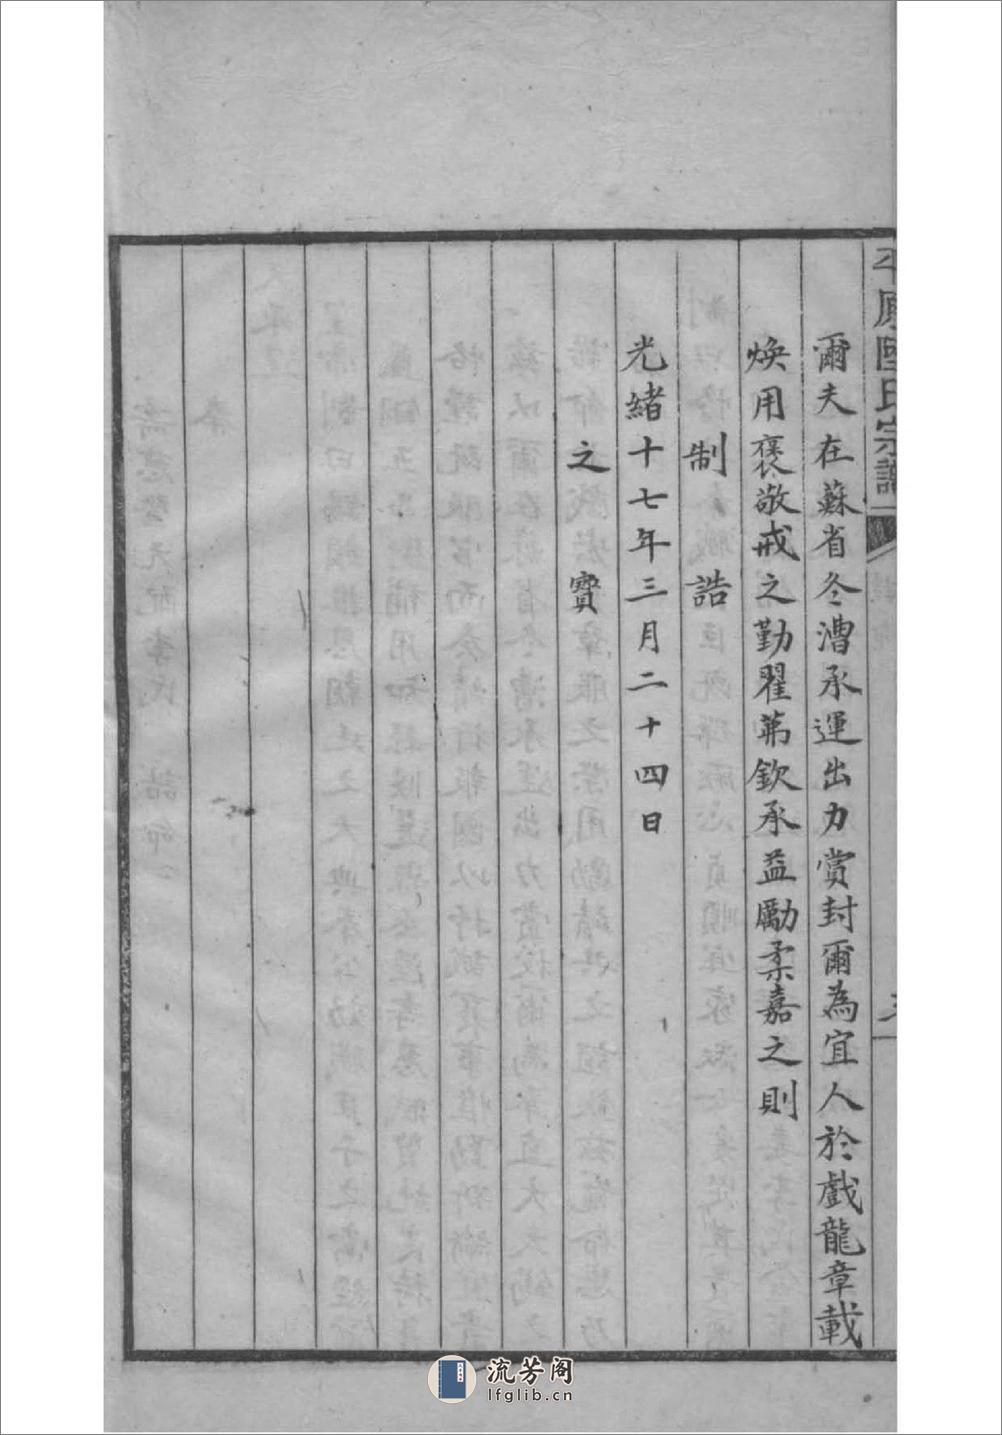 爾夫在蘇省冬漕承運出力賞封爾為宜人於戲龍章載
煥用褒敬戒之勤翟茀欽承益勵柔嘉之則
制誥
光緒十七年三月二十四日
之寶
流芳阁
lfglib.cn